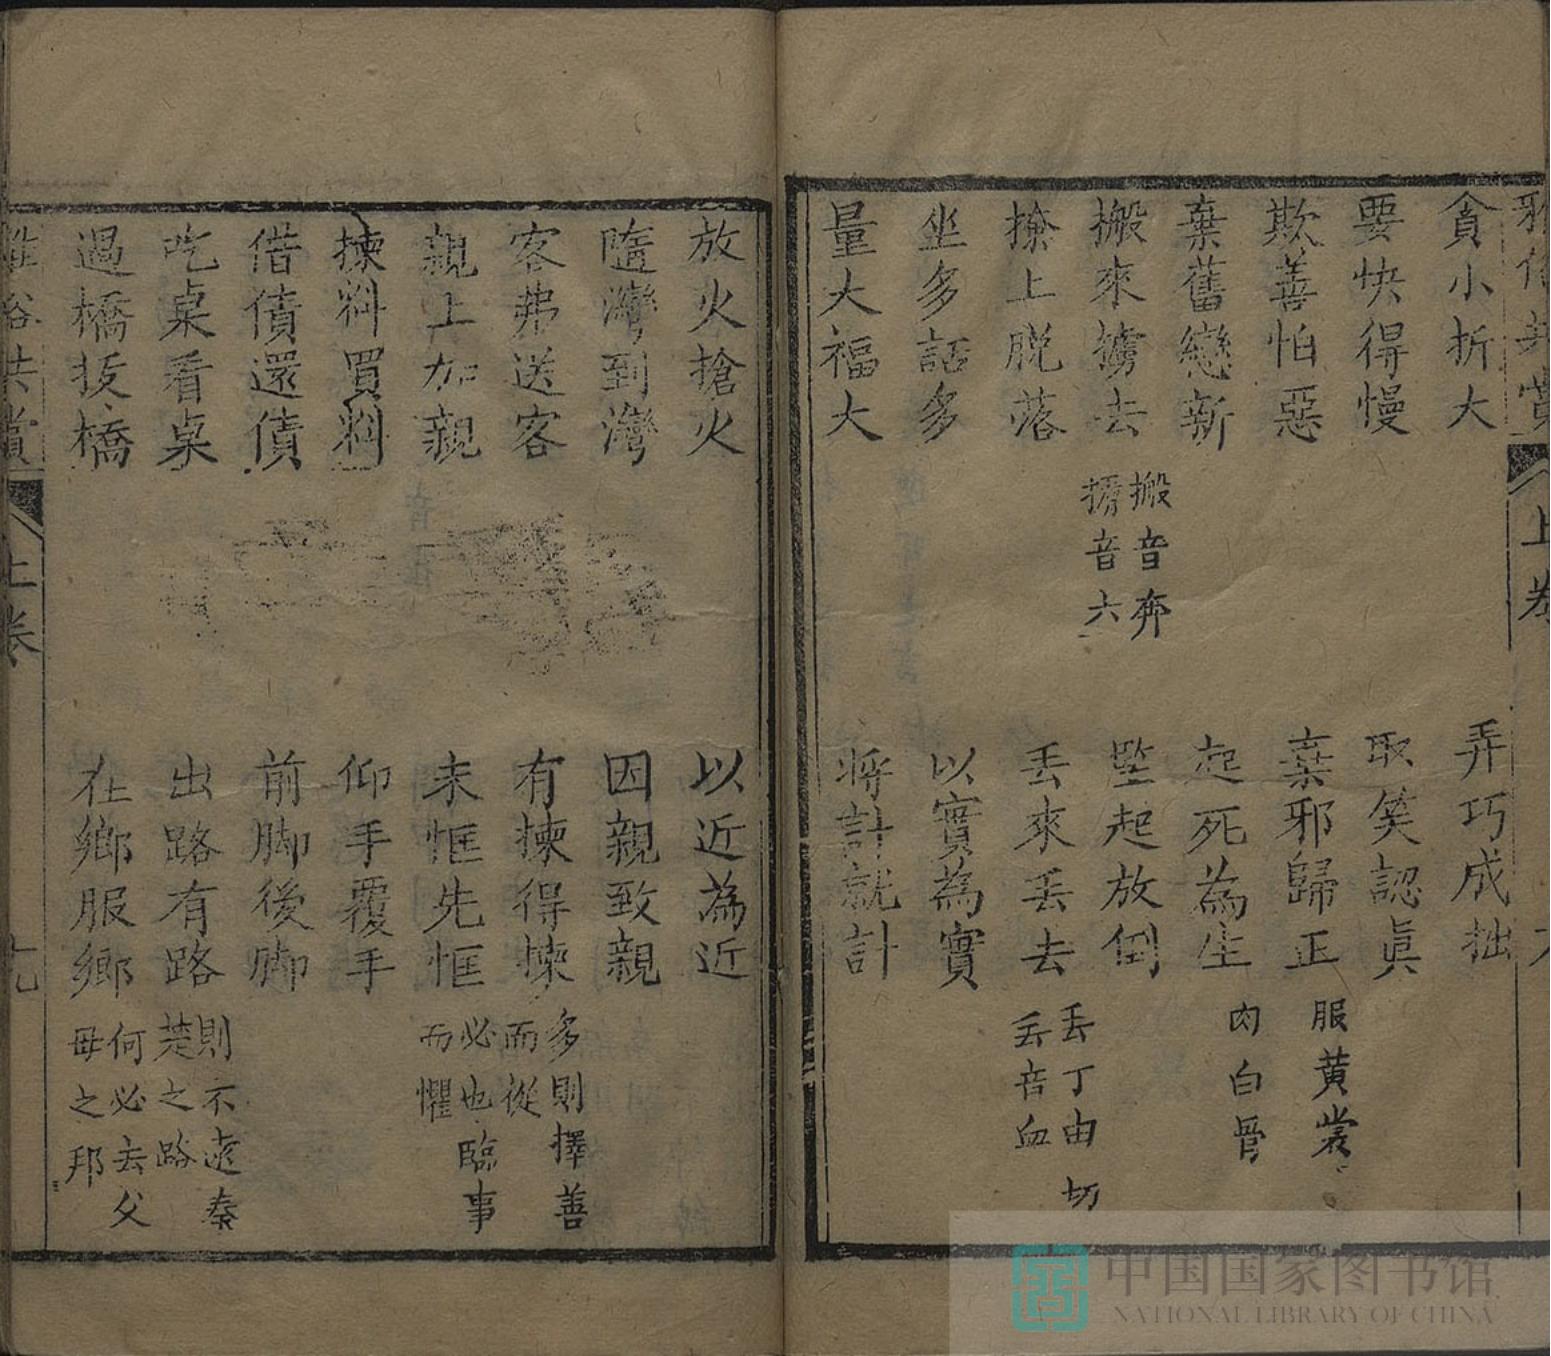 雅俗共賞
上卷
貪小折大
弄巧成拙
要快得慢
取笑認眞
欺善怕惡
棄邪歸正
服黃裳
棄舊戀新
起死為生
肉白骨
搬來擄去
搬音奔
音六
豎起放倒
撩上脫落
丟來丟去
丟丁由切
丟音血
坐多話多
以實為實
量大福大
將計就計
放火搶火
以近為近
隨灣到灣
因親致親
客弗送客
有揀得揀
多則擇善
而從
親上加親
未恇先恇
必也臨事
而懼
揀料買料
仰手覆手
借債還債
前脚後脚
吃桌看桌
出路有路
則不遠秦
楚之路
過橋拔橋
在鄉服鄉
何必去父
母之邦
雅俗共賞
上卷
十九
中国国家图书馆
NATIONAL LIBRARY OF CHINA